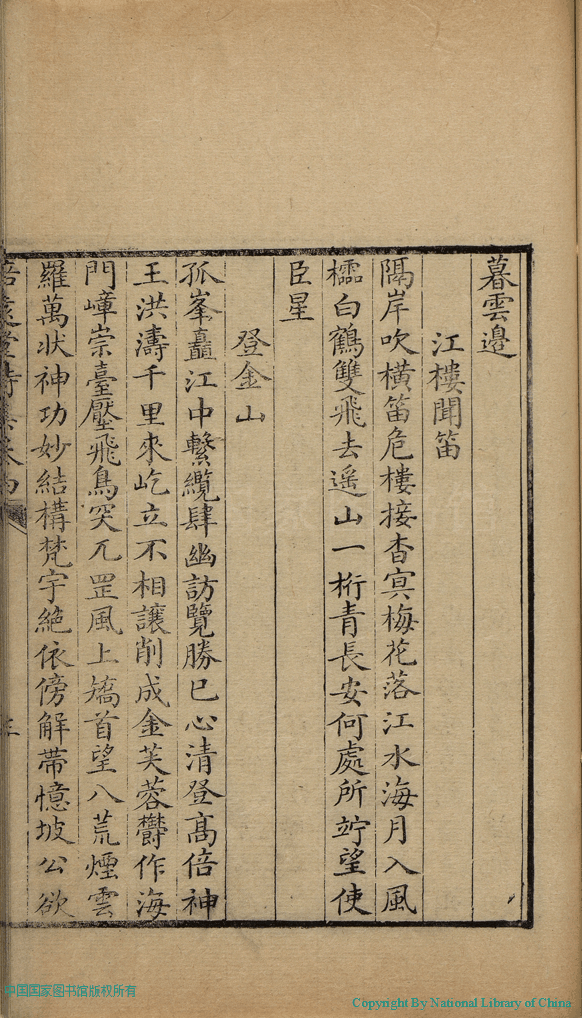 暮雲邊
江樓聞笛
隔岸吹橫笛危樓接杳冥梅花落江水海月入風
櫺白鶴雙飛去遥山一桁青長安何處所竚望使
臣星
登金山
孤峯矗江中繫纜肆幽訪覽勝已心清登髙倍神
王洪濤千里來屹立不相讓削成金芙蓉欝作海
門嶂崇臺壓飛鳥突兀罡風上矯首望八荒煙雲
羅萬狀神功妙結構梵宇絶依傍解帶憶坡公欲
中国国家图书馆版权所有
Copyright By National Library of China